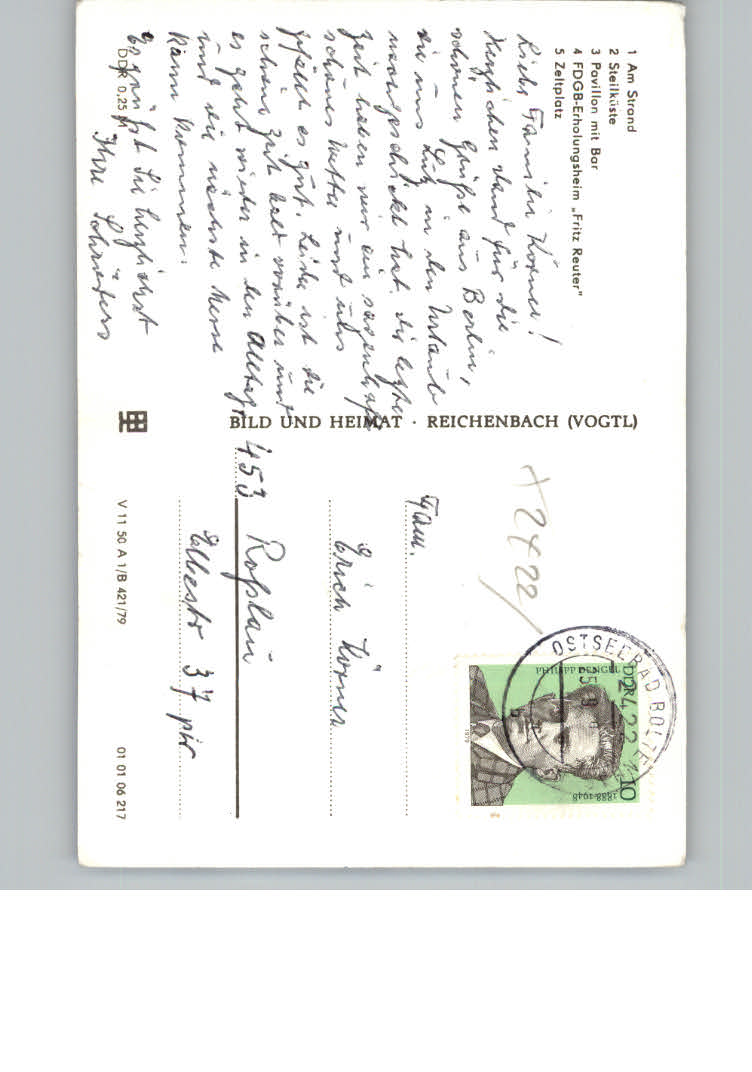 1 Am Strand
2 Steilküste
3 Pavillon mit Bar
4 FDGB-Erholungsheim „Fritz Reuter"
5 Zeltplatz
Liebe Familie Körner!
Herzlichen Dank für die
schönen Grüße aus Berlin,
die uns Lutz in den Urlaub
nachgeschickt hat. Die letzte
Zeit haben wir ein sagenhaft
schönes Wetter und uns
gefällt es gut. Leider ist die
schöne Zeit bald vorüber und
es geht wieder in den Alltag
und die nächste Messe
kann kommen.
Es grüßt Sie herzlichst
Ihre Schröters
DDR 0,25 M
BILD UND HEIMAT · REICHENBACH (VOGTL)
V 11 50 A 1/B 421/79
01 01 06 217
+2422/
OSTSEEBAD
2422
PHILIPP DENGEL
DDR
10
1888-1948
1979
Fam.
Erich Körner
453 Roßlau
Elbestr 37 ptr